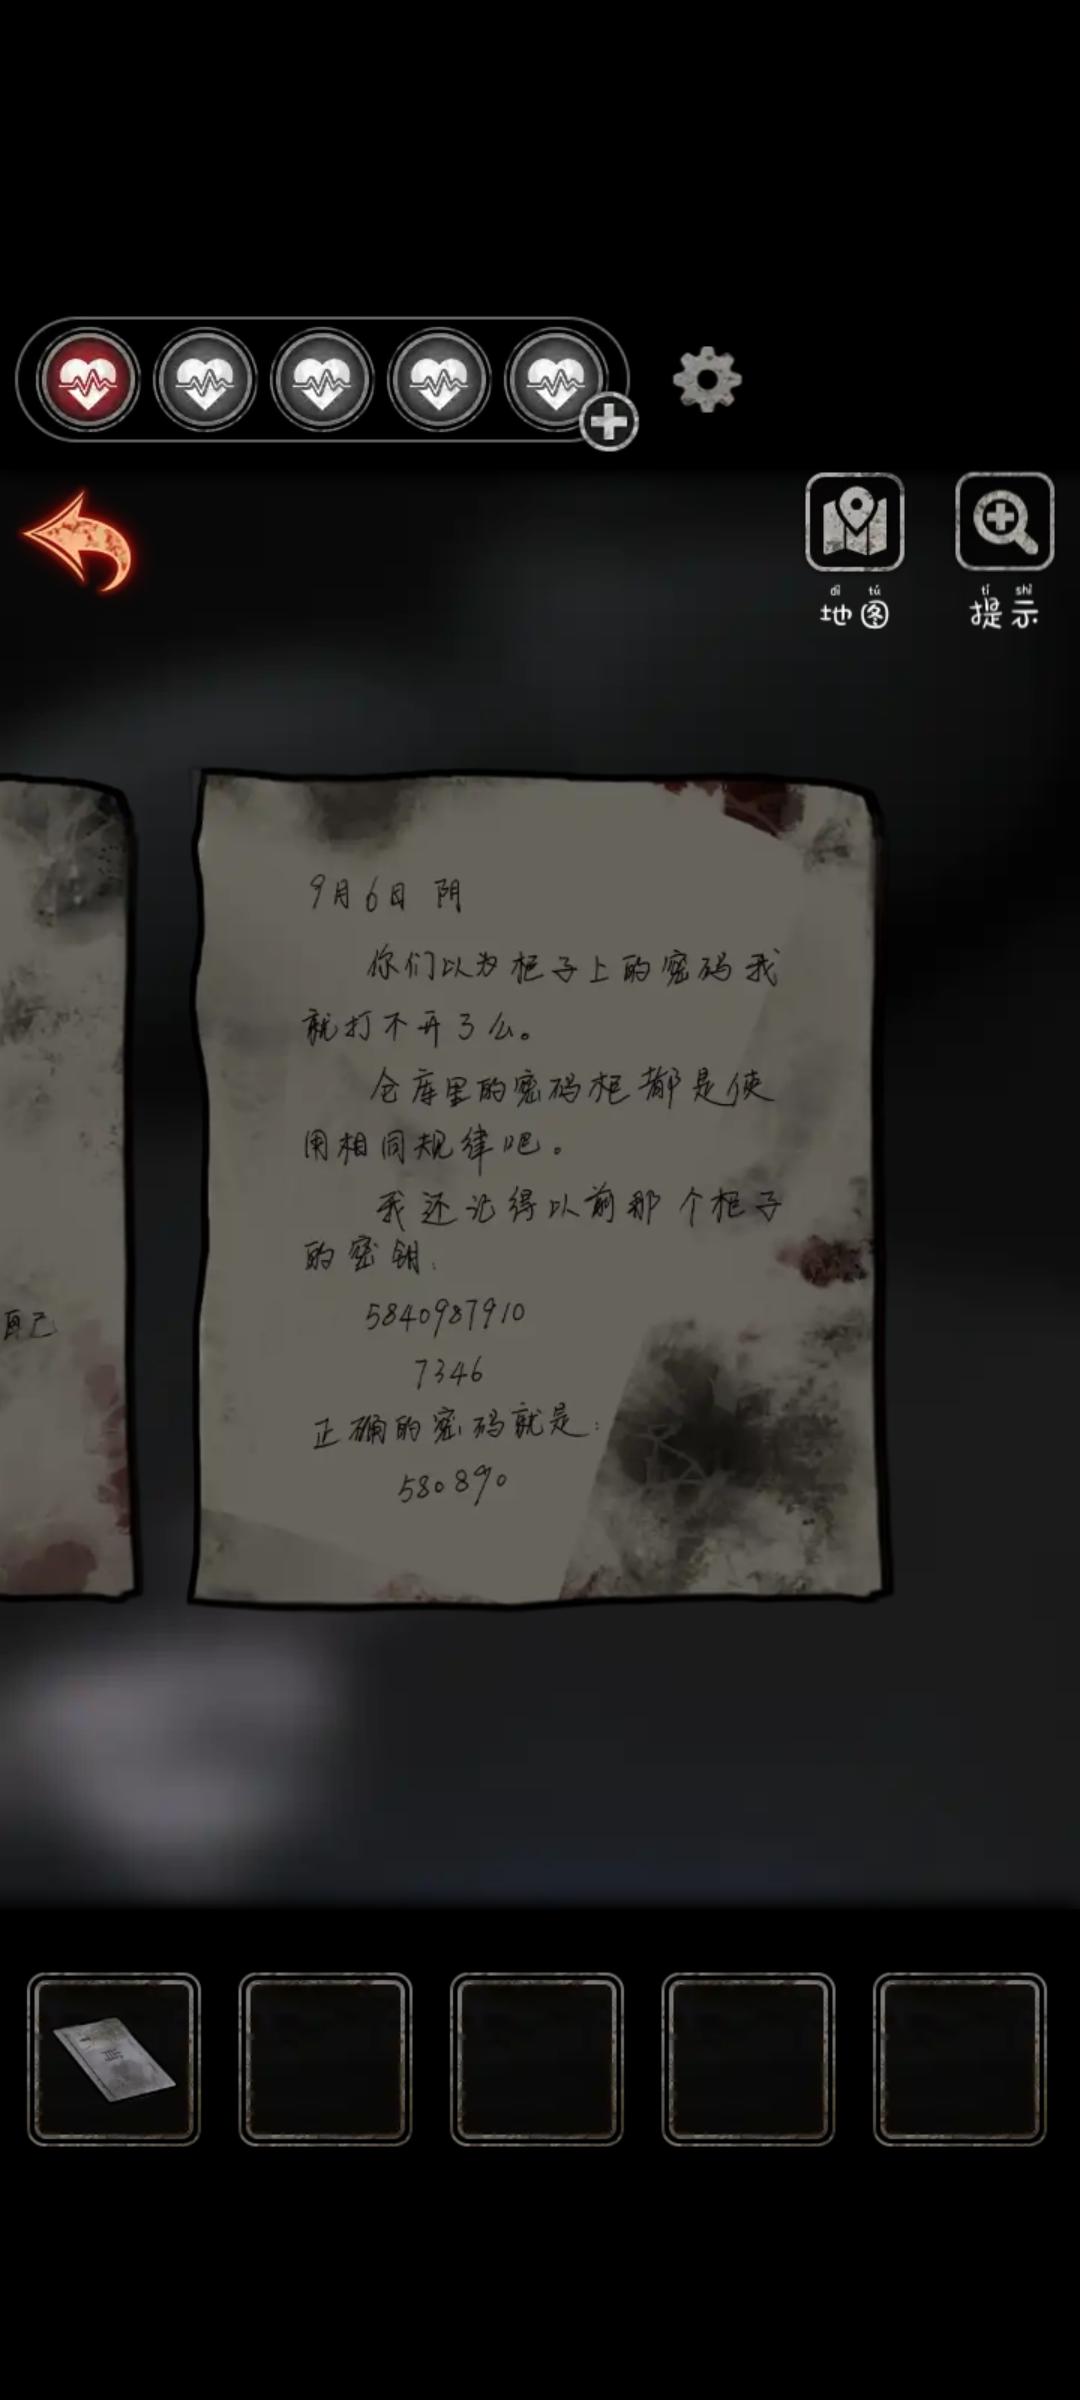 dì tú
地图
tí shì
提示
9月6日 阴
你们以为柜子上的密码我
就打不开了么。
仓库里的密码柜都是使
用相同规律吧。
我还记得以前那个柜子
的密钥:
5840987910
7346
正确的密码就是:
580890
自己